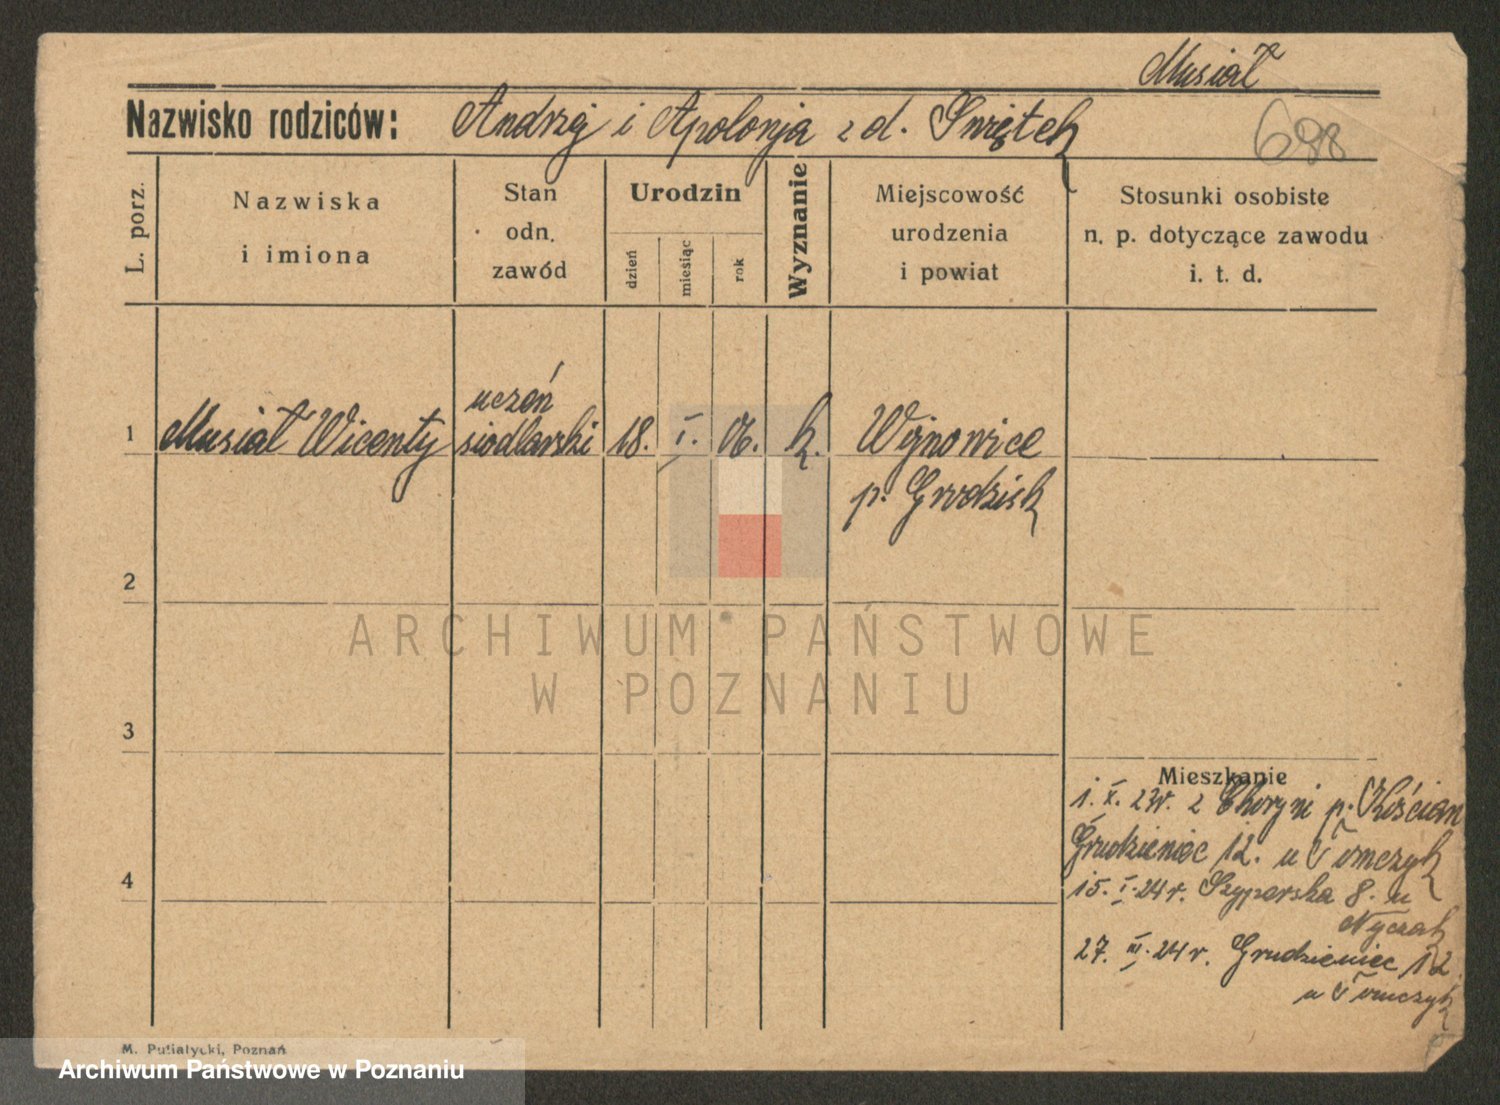 Musiał
Nazwisko rodziców: Andrzej i Apolonja z d. Świętek
698
L. porz.
Nazwiska
i imiona
Stan
odn.
zawód
Urodzin
dzień
miesiąc
rok
Wyznanie
Miejscowość
urodzenia
i powiat
Stosunki osobiste
n. p. dotyczące zawodu
i. t. d.
uczeń
1 Musiał Wicenty siodlarski 18. I. 06. k. Wojnowice
p. Grodzisk
2
3
ARCHIWUM PAŃSTWOWE
W POZNANIU
Mieszkanie
1. X. 23r. z Choryni p. Kościan
Grudzieniec 12. u Tomczyk
4
15. I. 24 r. Szyperska 8. u
Nyczak
27. III. 24 r. Grudzieniec 12.
u Tomczyk
M. Putiatycki, Poznań
Archiwum Państwowe w Poznaniu